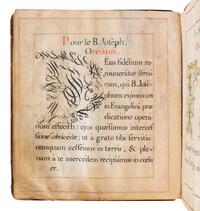 Pour le B. Joseph.
Oremus.
Deus fidelium re-
munerator servo-
rum, qui B. Jose-
phum eximium
in Evangelica præ-
dicatione opera-
rium effecisti: ejus quæsumus interces-
sione concede; ut à grato tibi servitio
nunquam cessemus in terris, & ple-
nam a te mercedem recipiamus in coelis